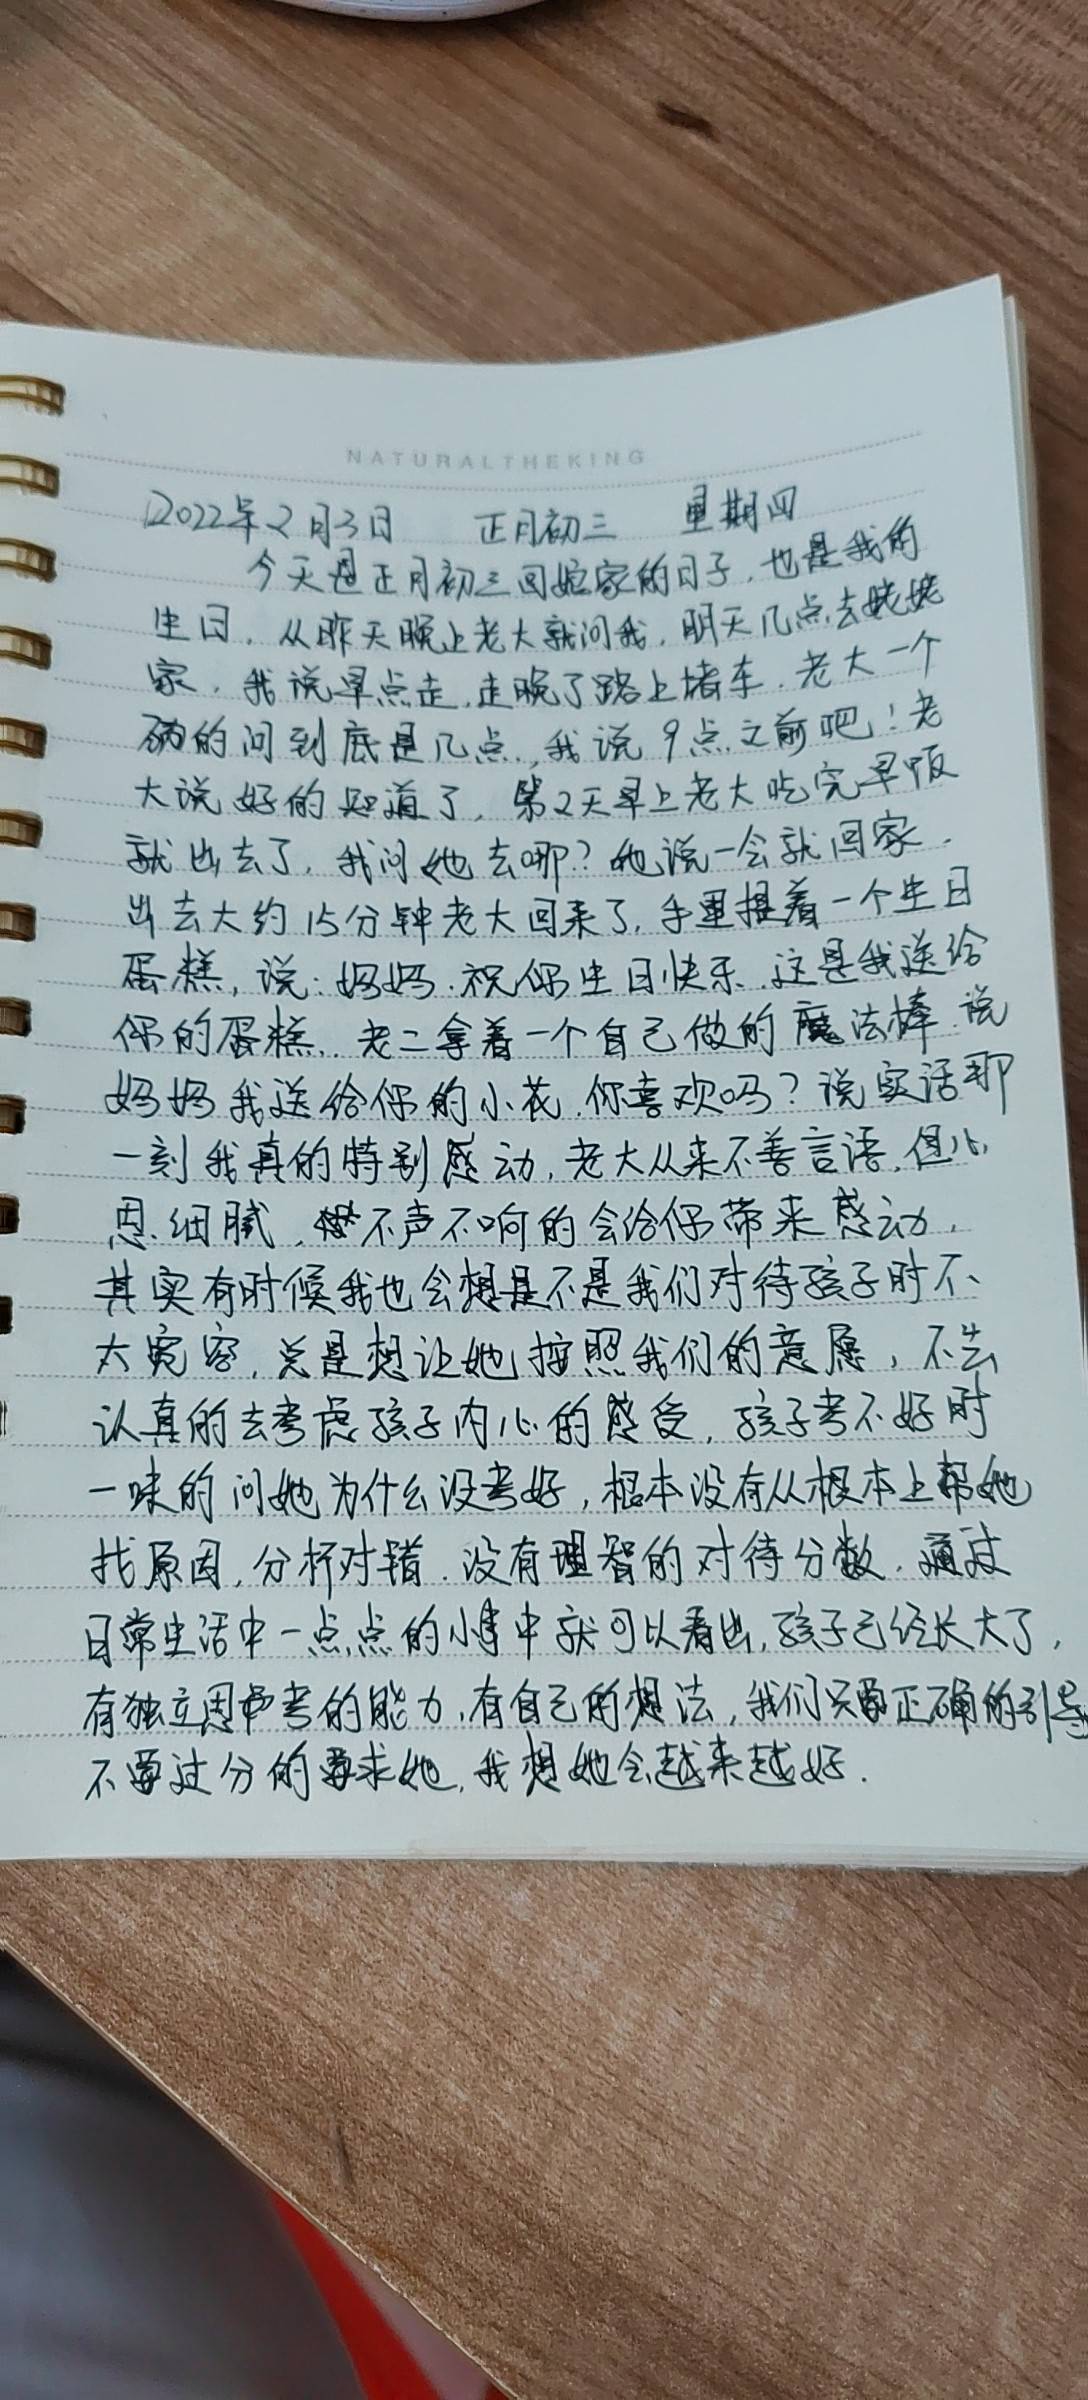 NATURALTHEKING
2022年2月3日 正月初三 星期四
今天是正月初三回娘家的日子,也是我的
生日,从昨天晚上老大就问我,明天几点去姥姥
家,我说早点走,走晚了路上堵车,老大一个
的问到底是几点,我说9点之前吧!老
大说好的知道了,第2天早上老大吃完早饭
就出去了,我问她去哪?她说一会就回家.
出去大约15分钟老大回来了,手里提着一个生日
蛋糕,说:妈妈.祝你生日快乐.这是我送给
你的蛋糕.老二拿着一个自己做的魔法棒.说
妈妈我送给你的小花,你喜欢吗?说实话那
一刻我真的特别感动,老大从来不善言语,但心
思细腻,不声不响的会给你带来感动,
其实有时候我也会想是不是我们对待孩子时不
太宽容,总是想让她按照我们的意愿,不去
认真的去考虑孩子内心的感受,孩子考不好时
一味的问她为什么没考好,根本没有从根本上帮她
找原因,分析对错.没有理智的对待分数.通过
日常生活中一点点的小事中就可以看出,孩子已经长大了,
有独立思考的能力,有自己的想法,我们只要正确的引导
不要过分的要求她,我想她会越来越好.